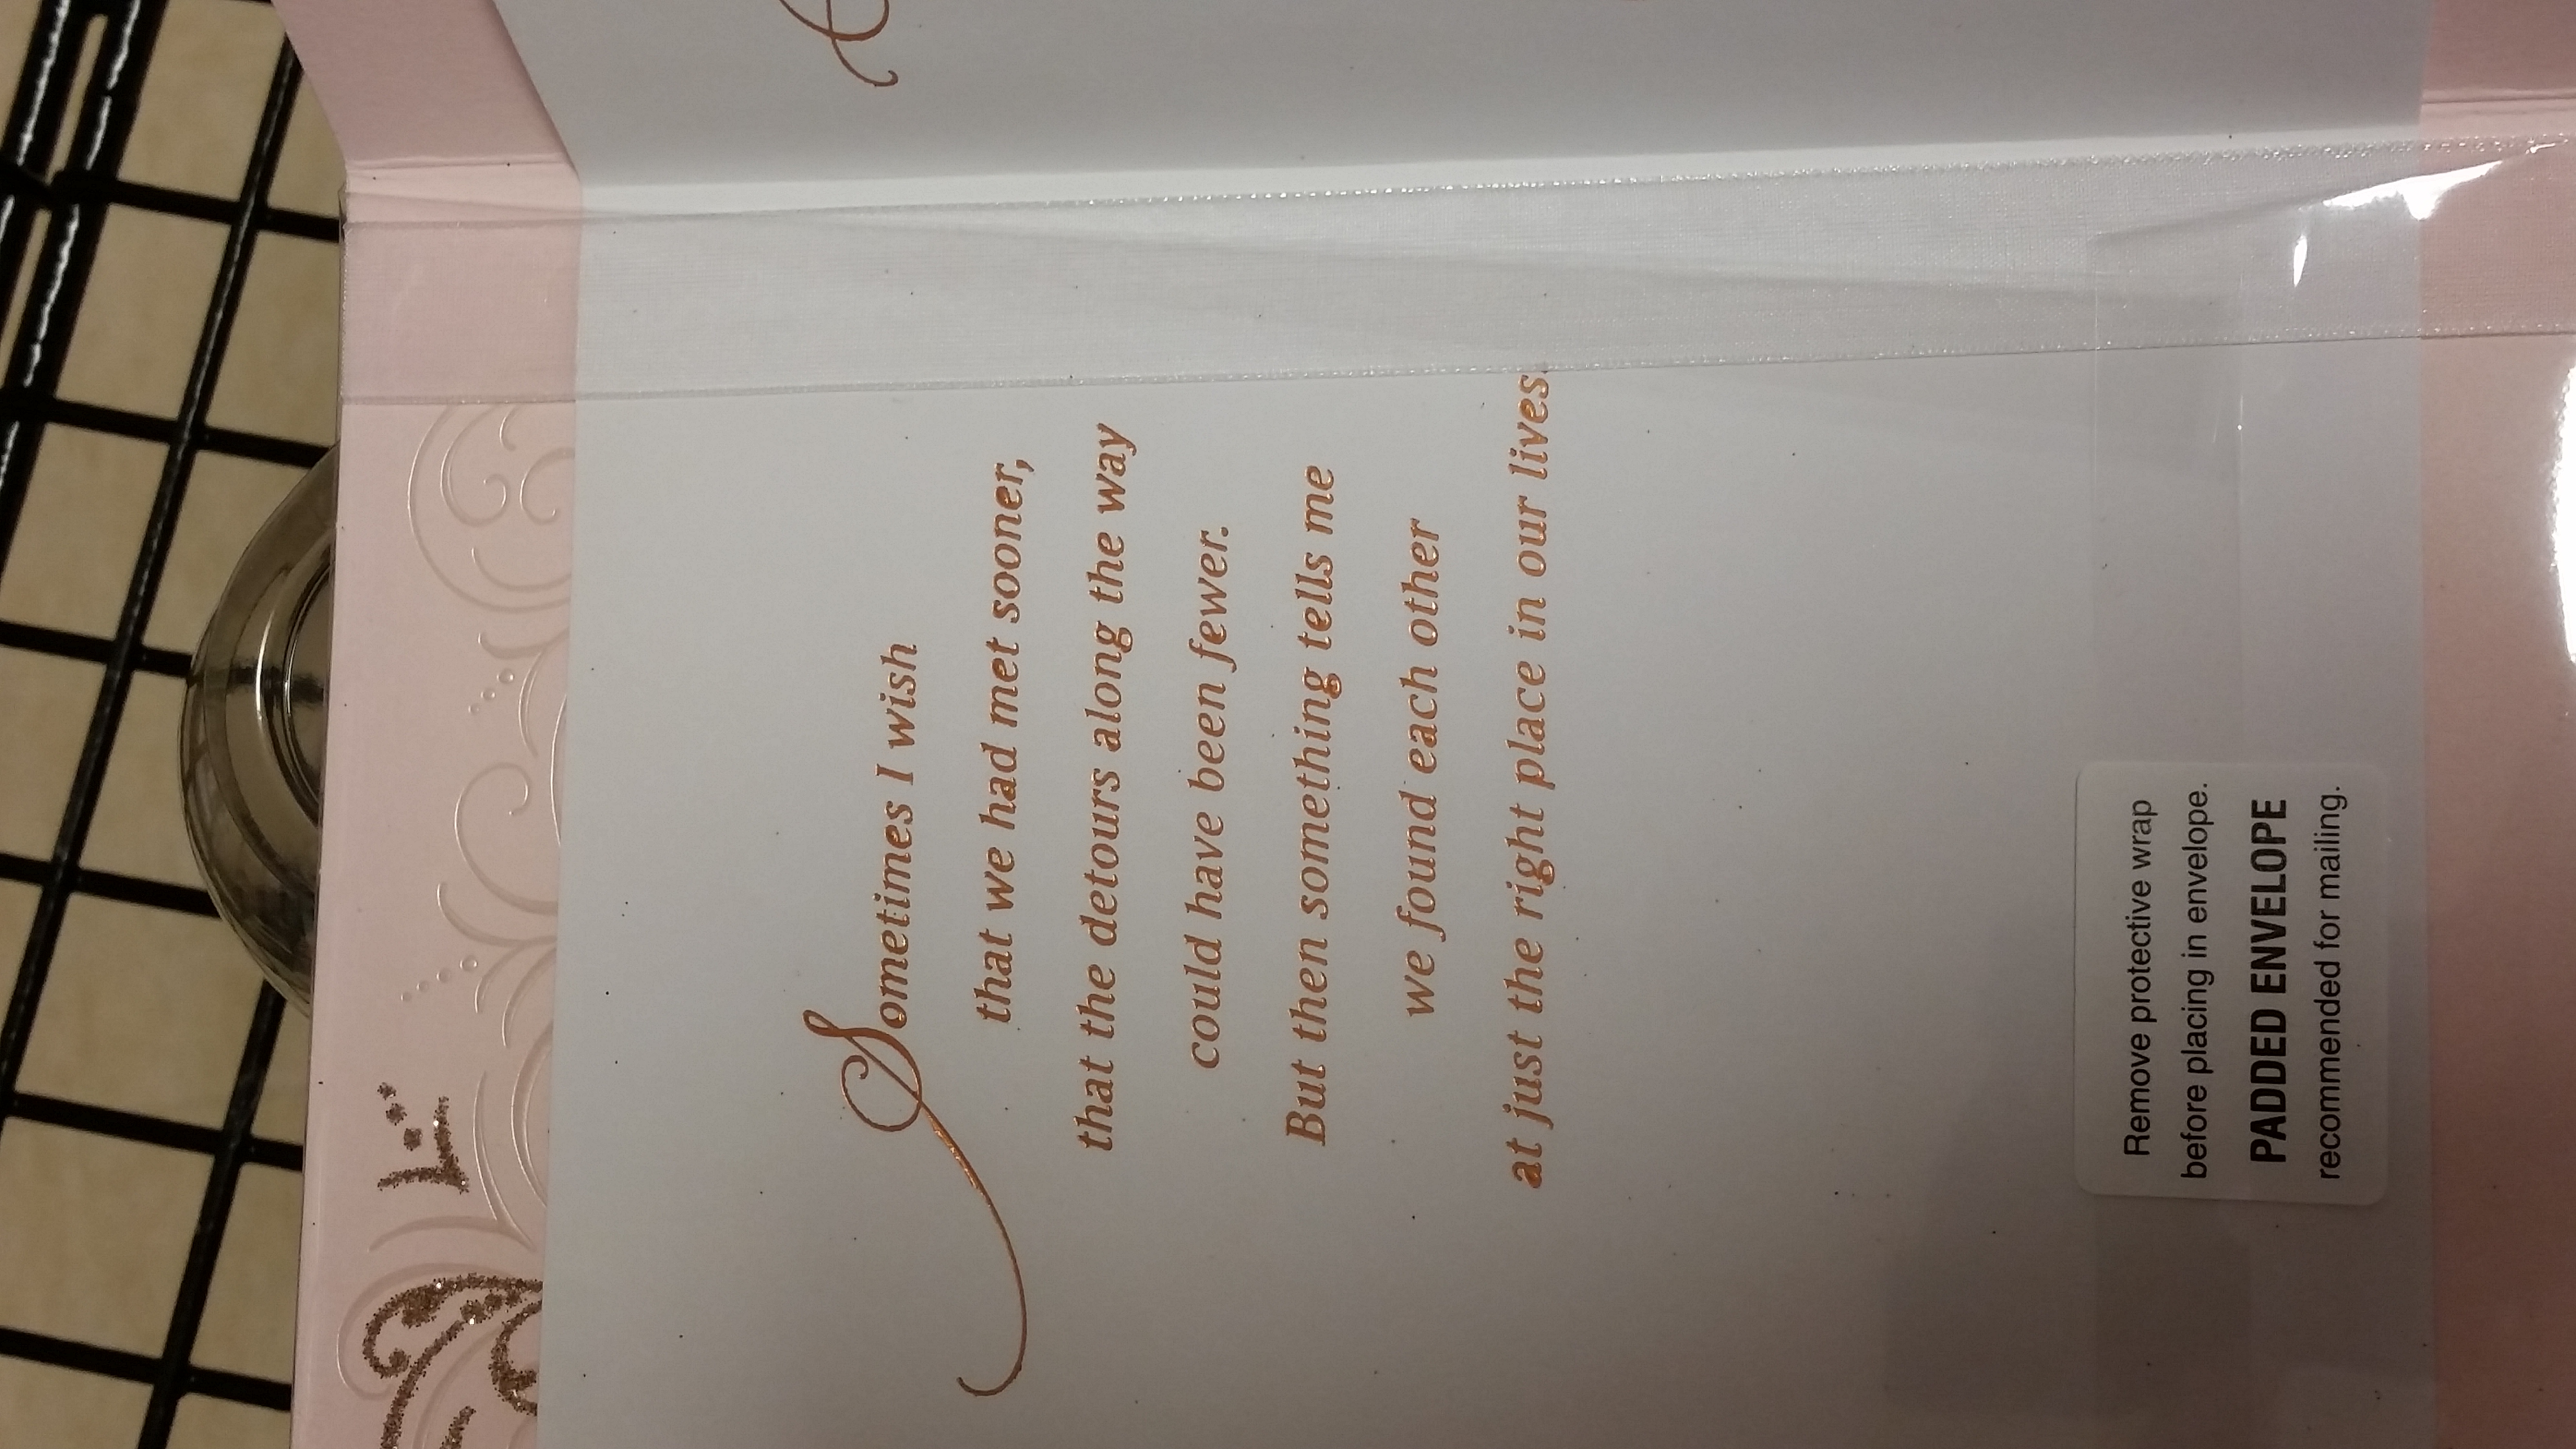 Sometimes I wish
that we had met sooner,
that the detours along the way
could have been fewer.
But then something tells me
we found each other
at just the right place in our lives.
Remove protective wrap
before placing in envelope.
PADDED ENVELOPE
recommended for mailing.